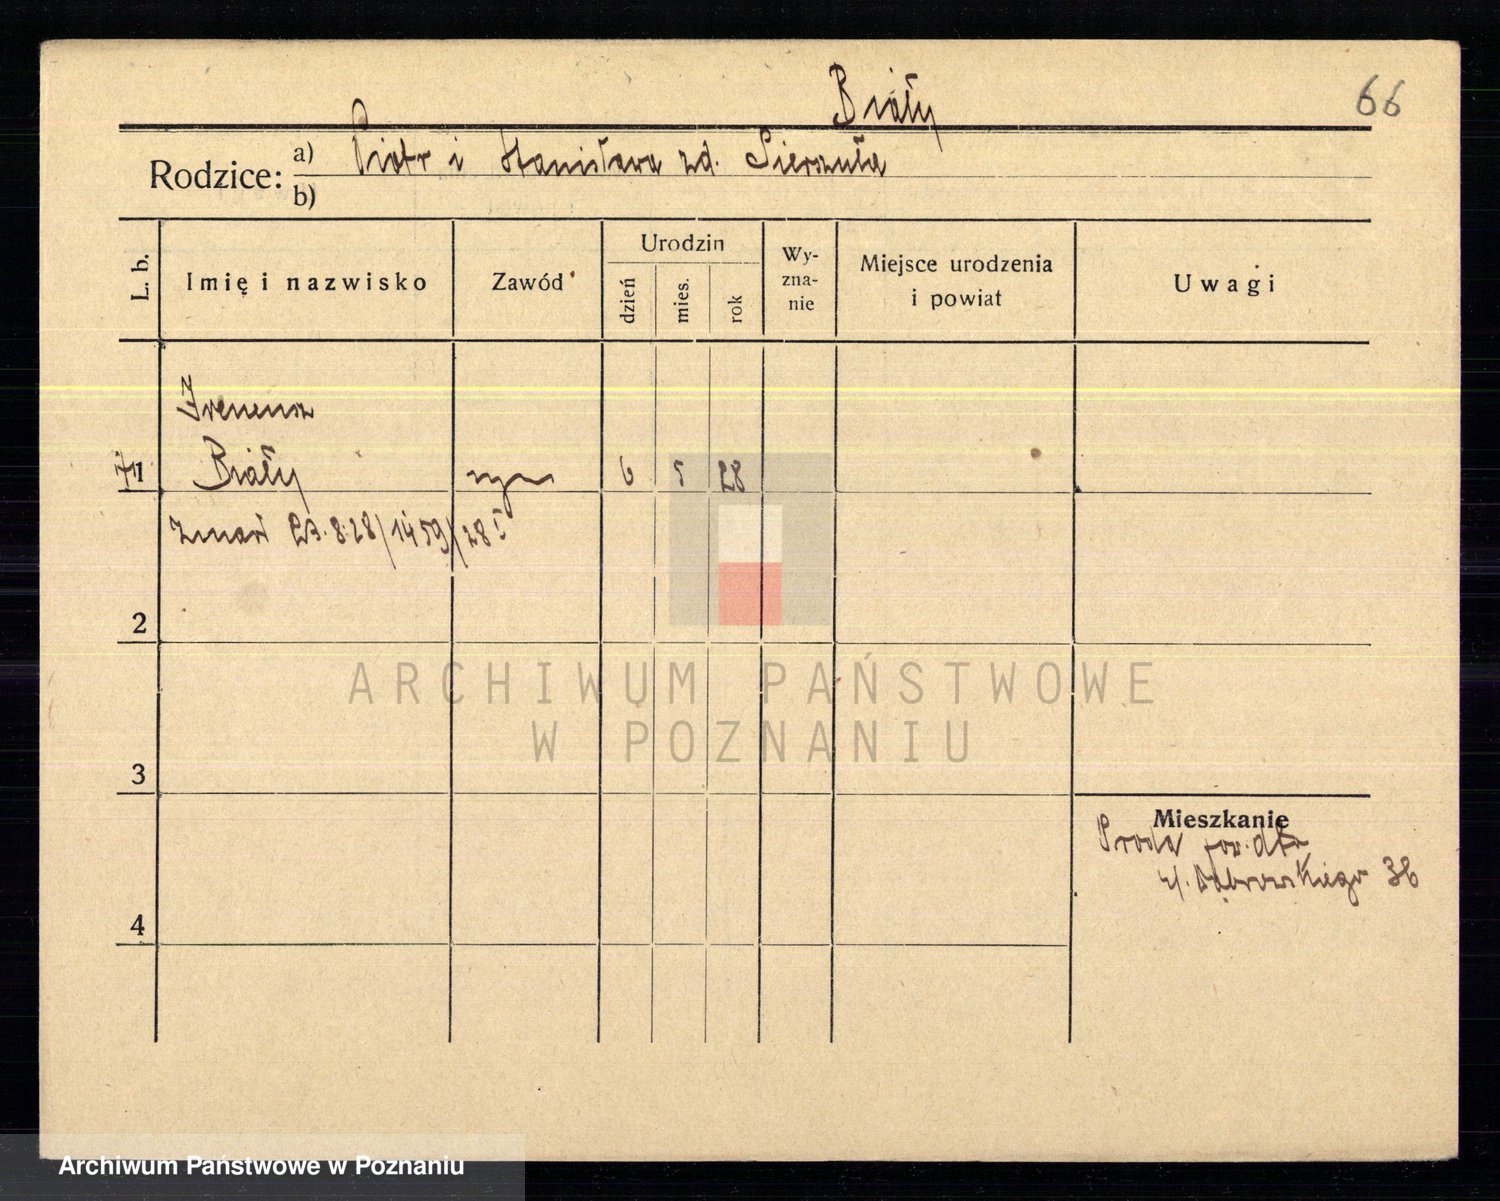 Biały
66
Rodzice:
a) Piotr i Stanisława zd. Sierszuła
b)
L. b.
Imię i nazwisko
Zawód
Urodzin
dzień
mies.
rok
Wy-
zna-
nie
Miejsce urodzenia
i powiat
Uwagi
Ireneusz
1 Biały syn 6 5 28
zmarł 23.8.28/1459/28 I
2
3
4
Mieszkanie
Środa
ul. Dąbrowskiego 36
ARCHIWUM PAŃSTWOWE
W POZNANIU
Archiwum Państwowe w Poznaniu